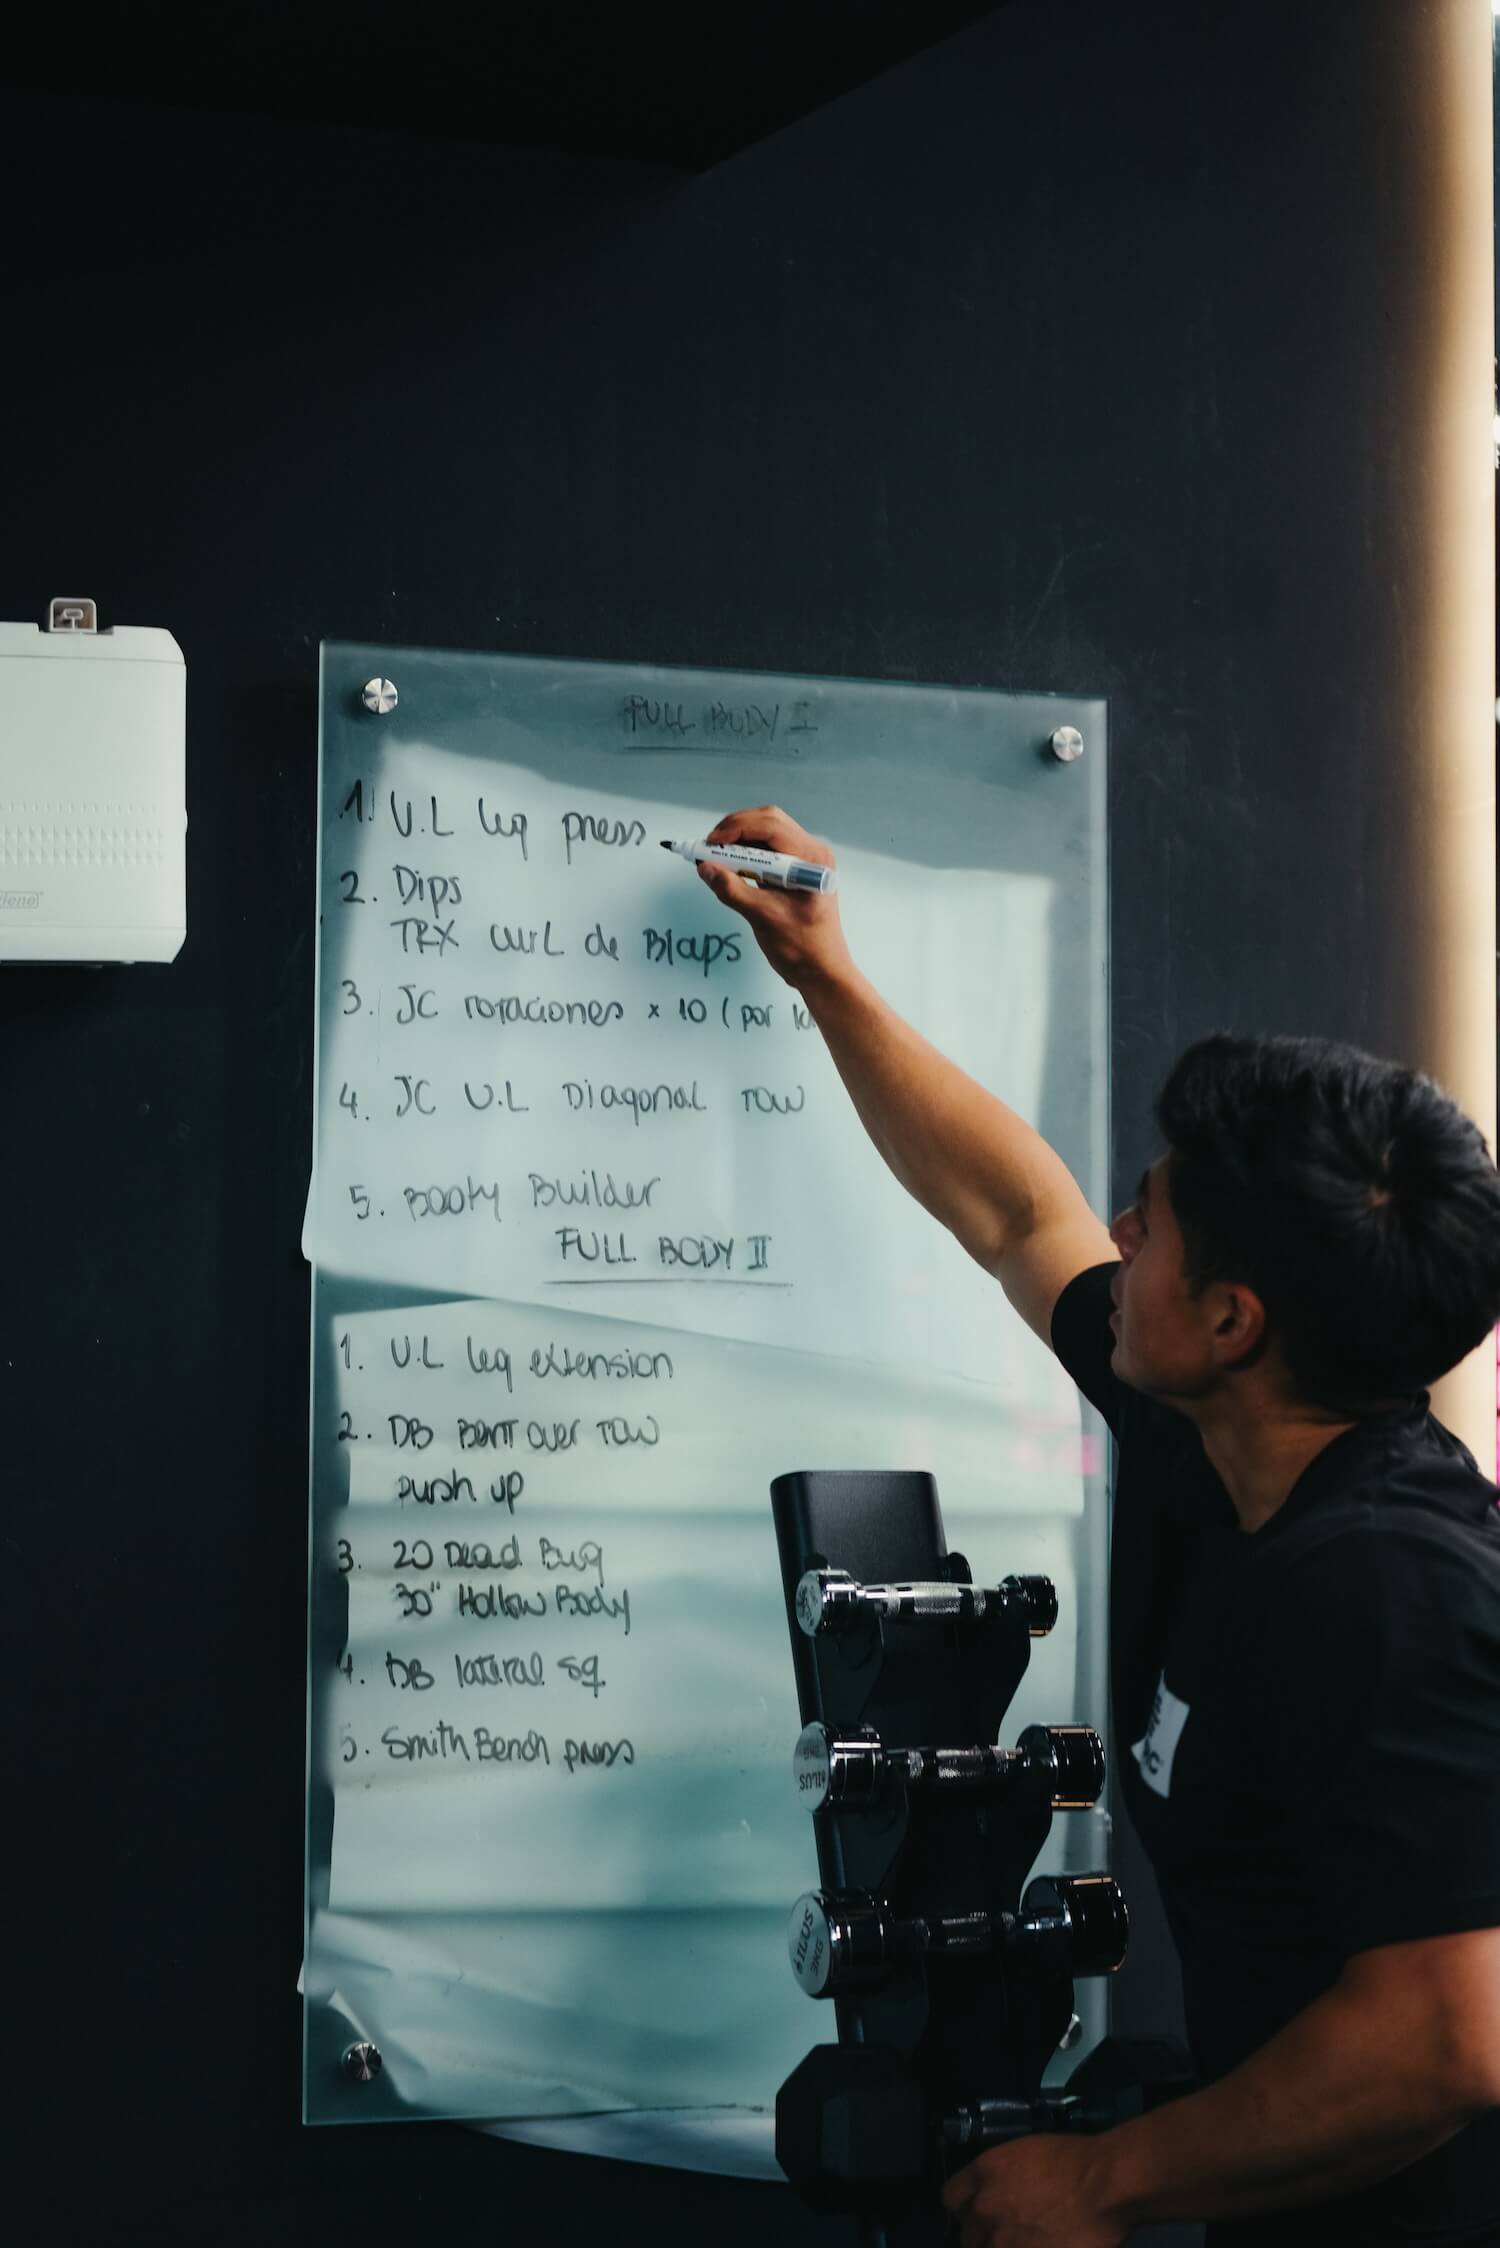 FULL BODY I
1. U.L leg press
2. Dips
TRX curL de Blaps
3. JC rotaciones x 10 (por la
4. JC U.L Diagonal row
5. Booty Builder
FULL BODY II
1. U.L leg extension
2. DB Bent over row
push up
3. 20 Dead Bug
30" Hollow Body
4. DB lateral sq.
5. Smith Bench press
ILUS
ILUS
3KG
WHITE BOARD MARKER